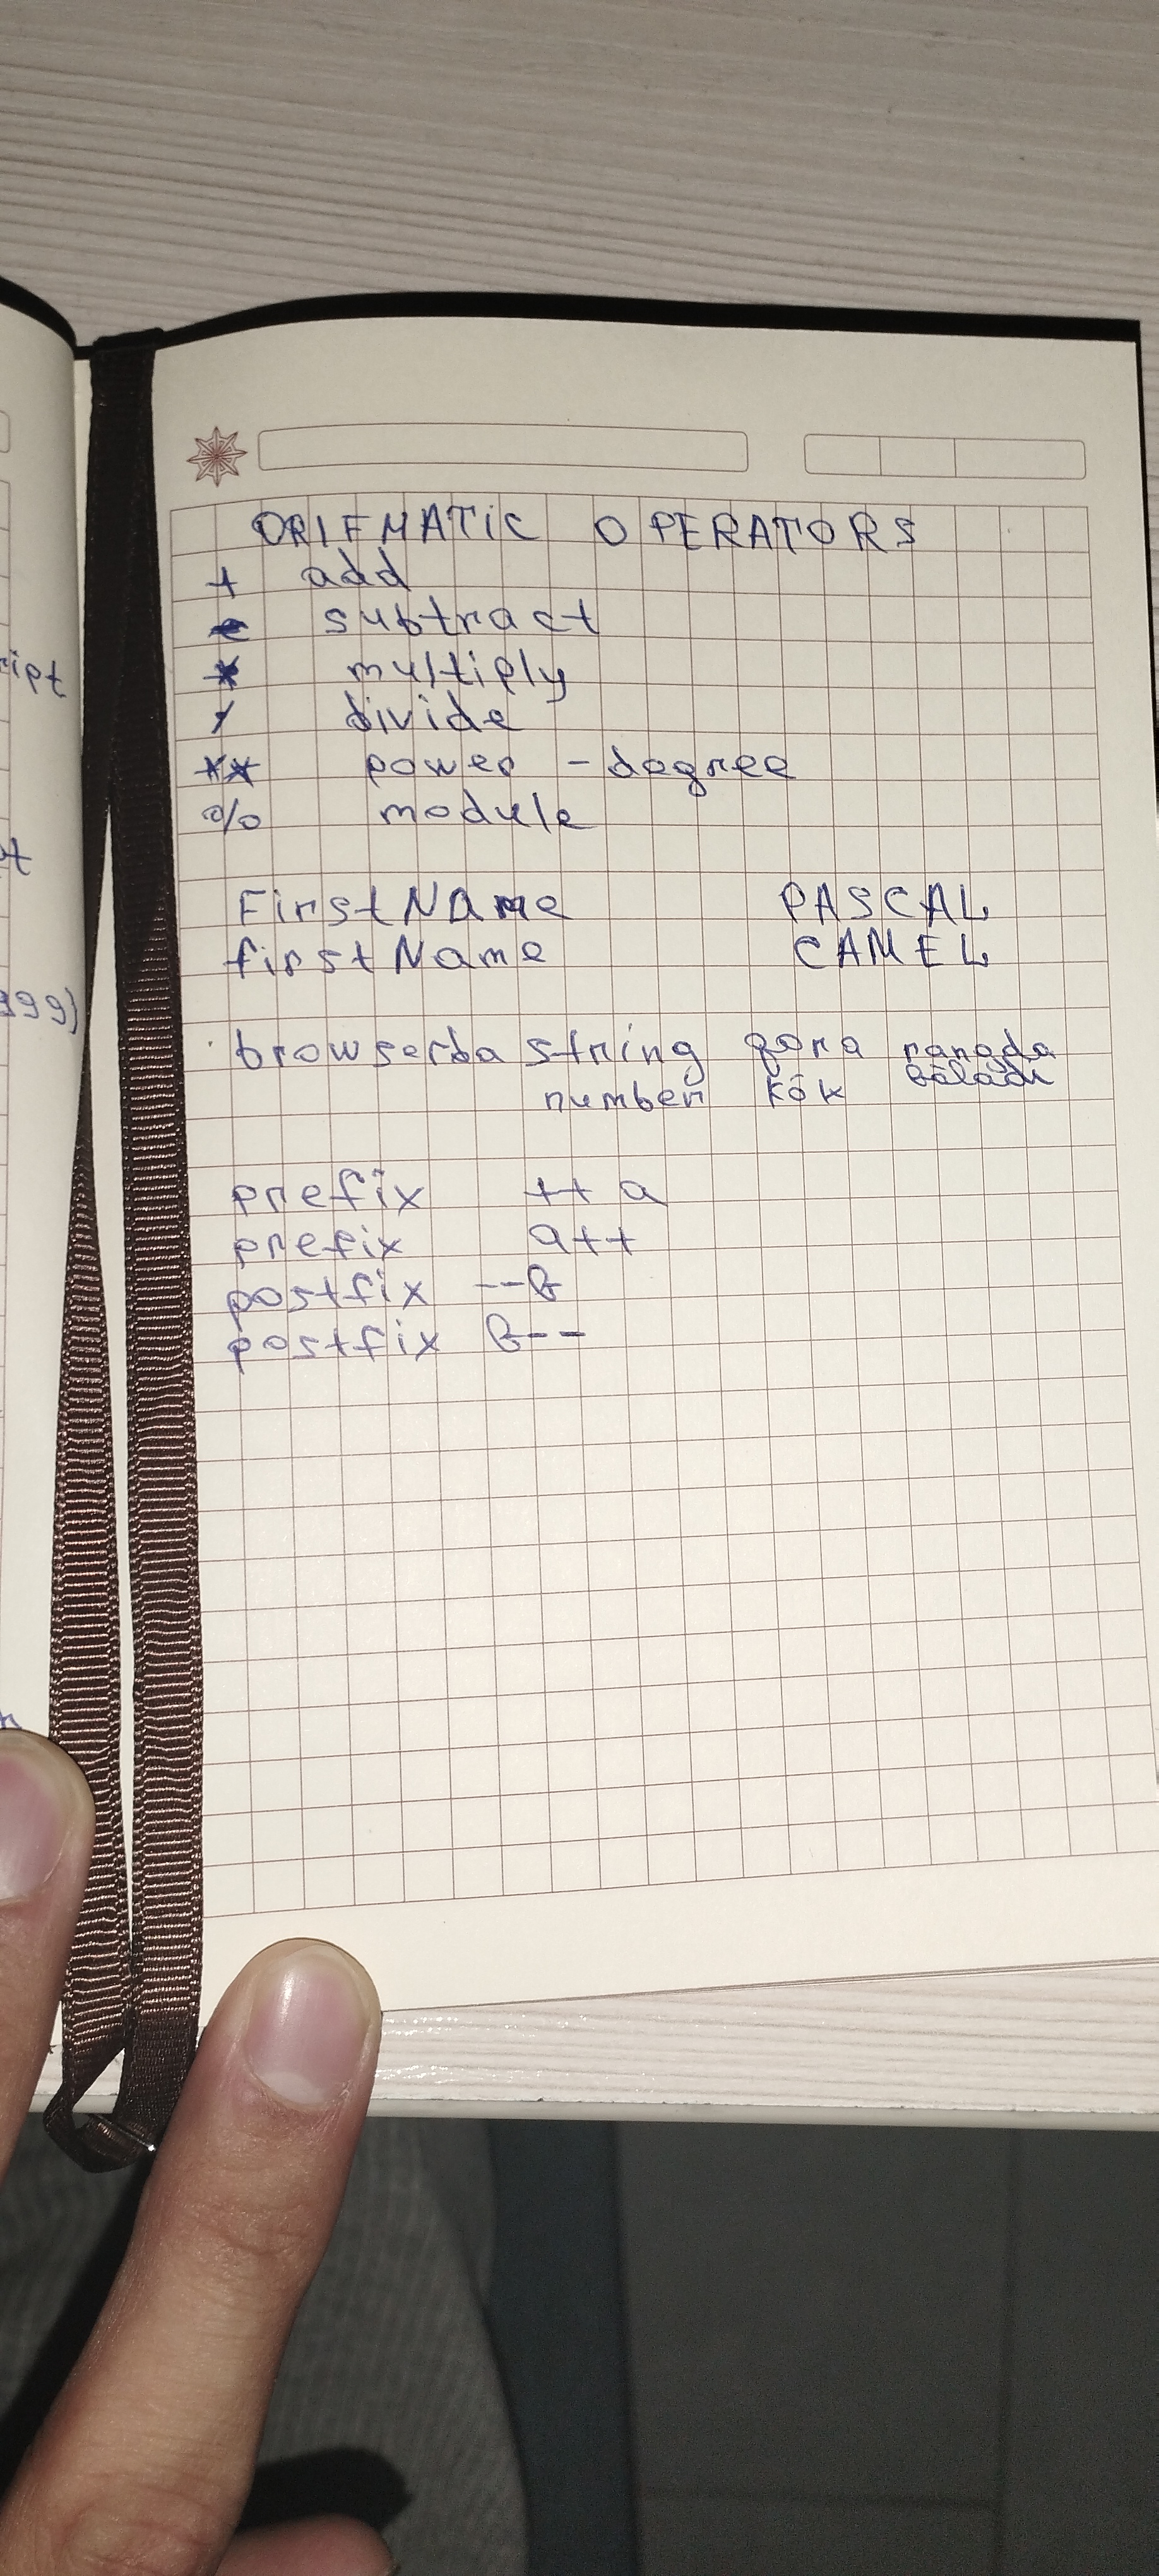 ipt
t
999)
ORIFMATIC OPERATORS
+ add
- subtract
* multiply
/ divide
** power - degree
% module
FirstName PASCAL
firstName CAMEL
browserda string qora rangda
number kök boladi
prefix ++ a
prefix a++
postfix --b
postfix b--